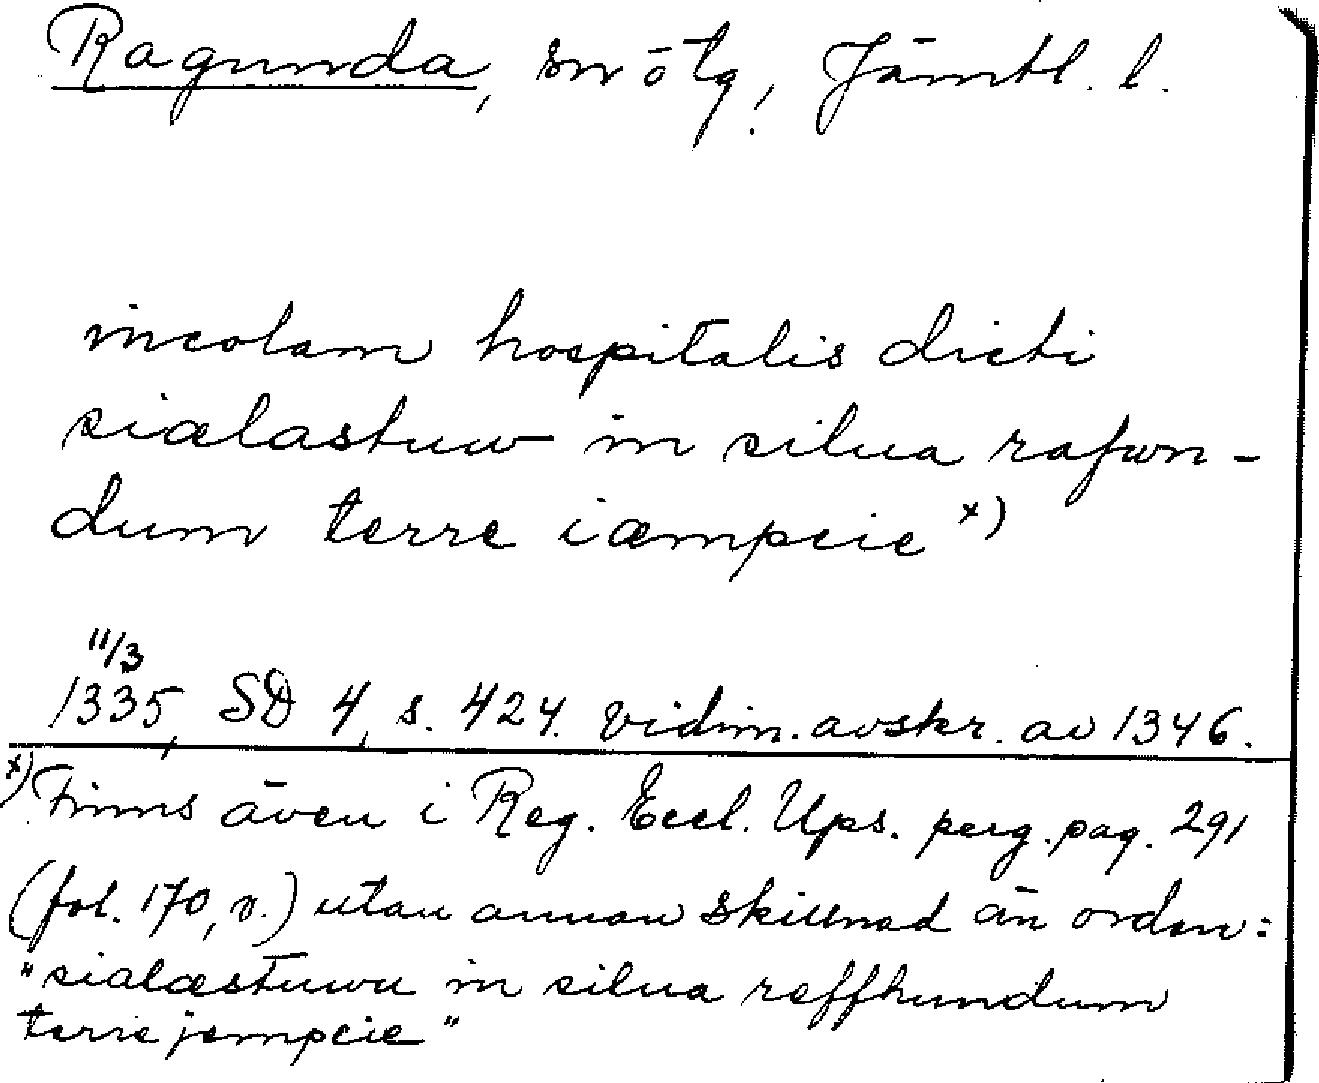 Ragunda, sn ōtg, Jämtl. l.
incolam hospitalis dicti
siælastuw in silua rafwn-
dum terre iæmpcie x)
11/3
1335, SD 4, s. 424. vidim. avskr. av 1346.
x) Finns även i Reg. Eccl. Ups. perg. pag. 291
(fol. 170, v.) utan annan skillnad än orden:
"sialæstuwu in silua reffhundum
terre jempcie"